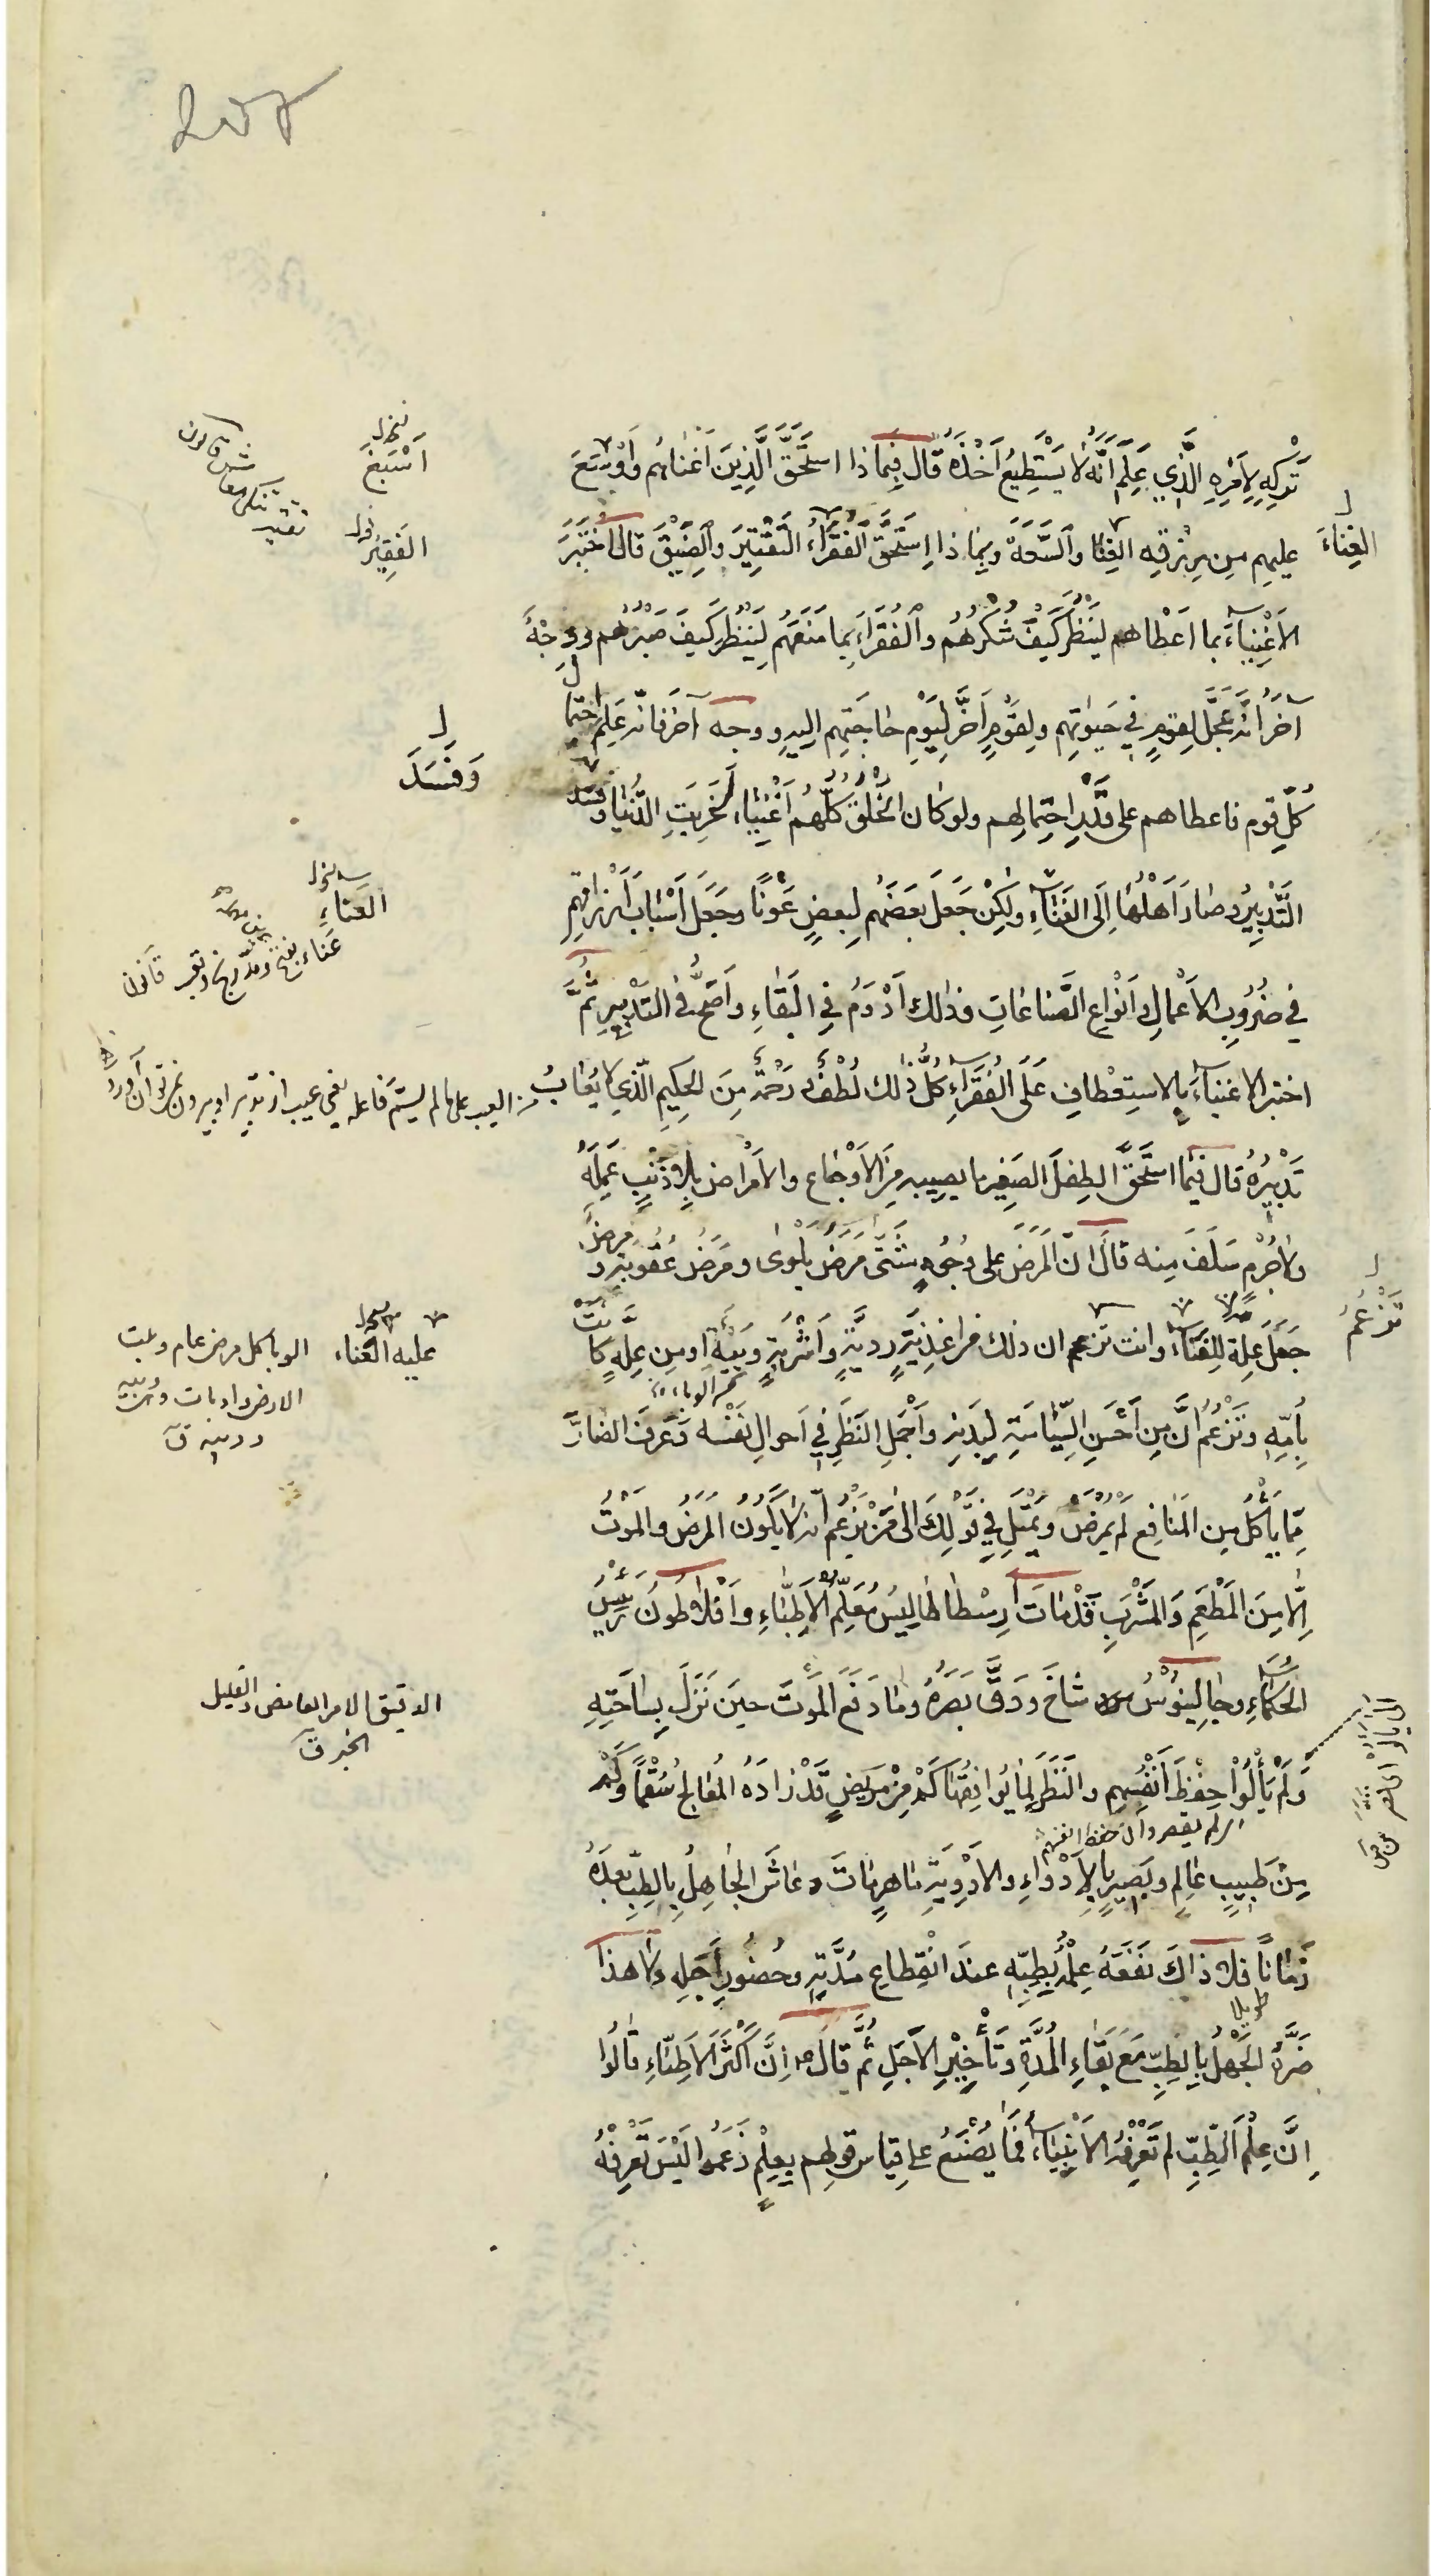 تَرْكِهِ لِاَمْرِهِ الَّذِي عَلِمَ اَنَّهُ لَا يَسْتَطِيعُ اَخْذَهُ قَالَ فَبِمَاذا اسْتَحَقَّ الَّذِينَ اَغْنَاهُم وَاَوْسَعَ
اَسْبَغَ
عليهِم مِن رِزْقِهِ الغِنَا وَالسَّعَةَ وَبِمَا ذا اِسْتَحَقَّ الْفُقَرَاءُ التَّقْتِيرَ وَالضِّيْقَ قالَ اخْتَبَرَ
الغِنَاءَ
الفَقِيْرُ
الاَغْنِيَاءَ بما اَعْطاهم لِيَنْظُرَ كَيْفَ شُكْرُهُم وَالْفُقَرَاءَ بِما مَنَعَهُم لِيَنْظُرَ كَيفَ صَبْرُهُم ووجْهٌ
آخَرُ انَّهُ عَجَّلَ لِقومٍ فِي حَيٰوتِهِم ولِقَوْمٍ اَخَّرَ لِيَوْمِ حاجَتِهِم اليهِ ووجه آخر فانّه عَلِمَ احتمال
كُلِّ قوم فاعطاهم على قَدْرِ احْتِمالِهِم ولو كان الخَلْقُ كُلُّهُم اَغْنِيَاءَ لَخَرِبَتِ الدُّنْيَا وفسد
وَفَسَدَ
التَّدْبِيرُ وصَارَ اَهْلُهَا اِلَى الفَنَاءِ ولٰكِنْ جَعَلَ بعَضَهُم لِبعضٍ عَوْنًا وجَعَلَ اَسْبَابَ اَرْزاقِهِم
العَنَاءِ
في ضُرُوبِ الاَعْمالِ وَاَنْوَاعِ الصِّنَاعَاتِ وذٰلك اَدْوَمُ فِي البَقَاءِ وَاَصَحُّ فِي التَّدْبِيرِ ثُمَّ
اختبر الاغنيَاءَ بالاستِعْطافِ عَلَى الْفُقَرَاءِ كُلُّ ذٰلك لُطْفٌ و رَحْمَةٌ مِنَ الحَكِيمِ الَّذِي لا يُعَابُ
تَدْبِيرُهُ قال فبما استحَقَّ الطِفلُ الصَغِير ما يصيبه مِنَ الاَوْجَاعِ والاَمْراضِ بِلا ذَنْبٍ عَمِلَهُ
ولا جُرْمٍ سَلَفَ مِنه قالَ انّ المَرَضَ على وُجُوهٍ شَتَّى مَرَضُ بَلْوٰى ومَرَضُ عُقُوبَةٍ و مرضٌ
جَعَلَ عِلّة لِلفَنَاءِ وانت تزعم ان ذلك من اغذِيَةٍ رديّةٍ وَاَشْرِبَةٍ وَبِيَّةٍ او مِن عِلّةٍ كانَتْ
تَزْعُمُ
عليه الفناء
بِاُمِّهِ وتَزْعُمُ انَّ مَن اَحْسَنَ السِّيَاسَةَ لِبَدَنِهِ واَجْمَلَ النَظَرَ فِي اَحوالِ نَفْسه وعَرَفَ الضارَّ
مِمّا يَأْكُلُ مِن المَنَافِعِ لَمْ يَمْرَضْ وتَمِيْلُ فِي قَوْلِكَ الى مَنْ يَزْعُم انه لا يَكُونُ المَرَضُ والمَوْتُ
اِلَّا مِنَ المَطْعَمِ وَالمَشْرَبِ قَدْ مَاتَ اَرِسْطَاطَالِيسُ مُعَلِّمُ الاَطِبَّاءِ وَاَفْلَاطُونُ رَئِيْسُ
الحُكَمَاءِ وجَالِينُوْسُ شَاخَ و دَقَّ بَصَرُهُ ومَا دَفَعَ المَوْتَ حِينَ نَزَلَ بِسَاحَتِهِ
الدقيق الامر الغامض والقليل
الخير ق
وَلَمْ يَأْلُوْا حِفْظَ اَنْفُسِهِم والنَظَرَ لِمَا يُوافِقُهَا كَمْ مِنْ مَرِيضٍ قَدْ زادَهُ المُعَالِجُ سُقْمًا وَكَمْ
اى لم يقصروا فى حفظ انفسهم
مِنْ طَبِيبٍ عَالِمٍ و بَصِيرٍ بِالاَدْوَاءِ والاَدْوِيَةِ مَاهِرٍ مَاتَ وعَاشَ الجَاهِلُ بِالطِبِّ بعدَهُ
زَمَانًا فلا ذاكَ نَفَعَهُ عِلْمُهُ بِطِبِّهِ عندَ انْقِطَاعِ مُدَّتِهِ وحُضُورِ اَجَلِهِ ولا هٰذا
طويلا
ضَرَّهُ الجَهْلُ بِالطِبِّ مَعَ بَقَاءِ المُدَّةِ وتَأْخِيْرِ الاَجَلِ ثُمَّ قالَ ع اِنَّ اَكْثَرَ الاَطِبَّاءِ قالُوا
اِنَّ عِلْمَ الطِّبِّ لم تَعْرِفْهُ الاَنْبِيَاءُ فَمَا يُصْنَعُ على قِيَاسِ قولِهِم بِعِلْمٍ زَعَمُوا لَيْسَ تَعْرِفُهُ